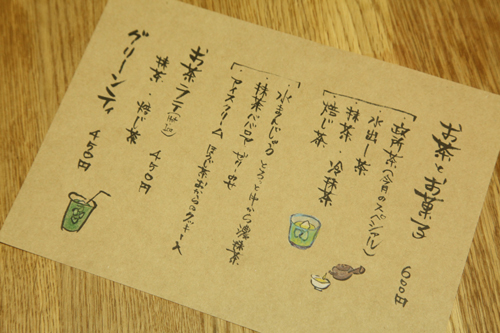 お茶とお菓子 600円
煎茶(今月のスペシャル)
・水出し茶
・抹茶 冷抹茶
・焙じ茶
・水まんじゅう とろっと中から濃抹茶
・抹茶ババロア ぜり のせ
・アイスクリーム ほうじ茶おからのクッキー入
お茶ラテ
抹茶・焙じ茶 450円
グリーンティ 450円